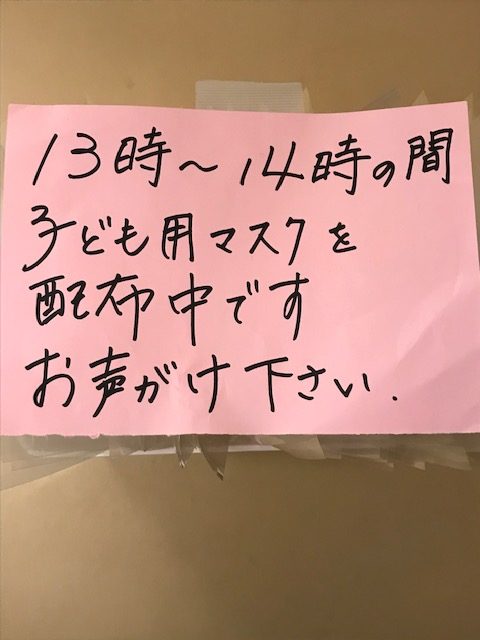 13時〜14時の間
子ども用マスクを
配布中です
お声がけ下さい.